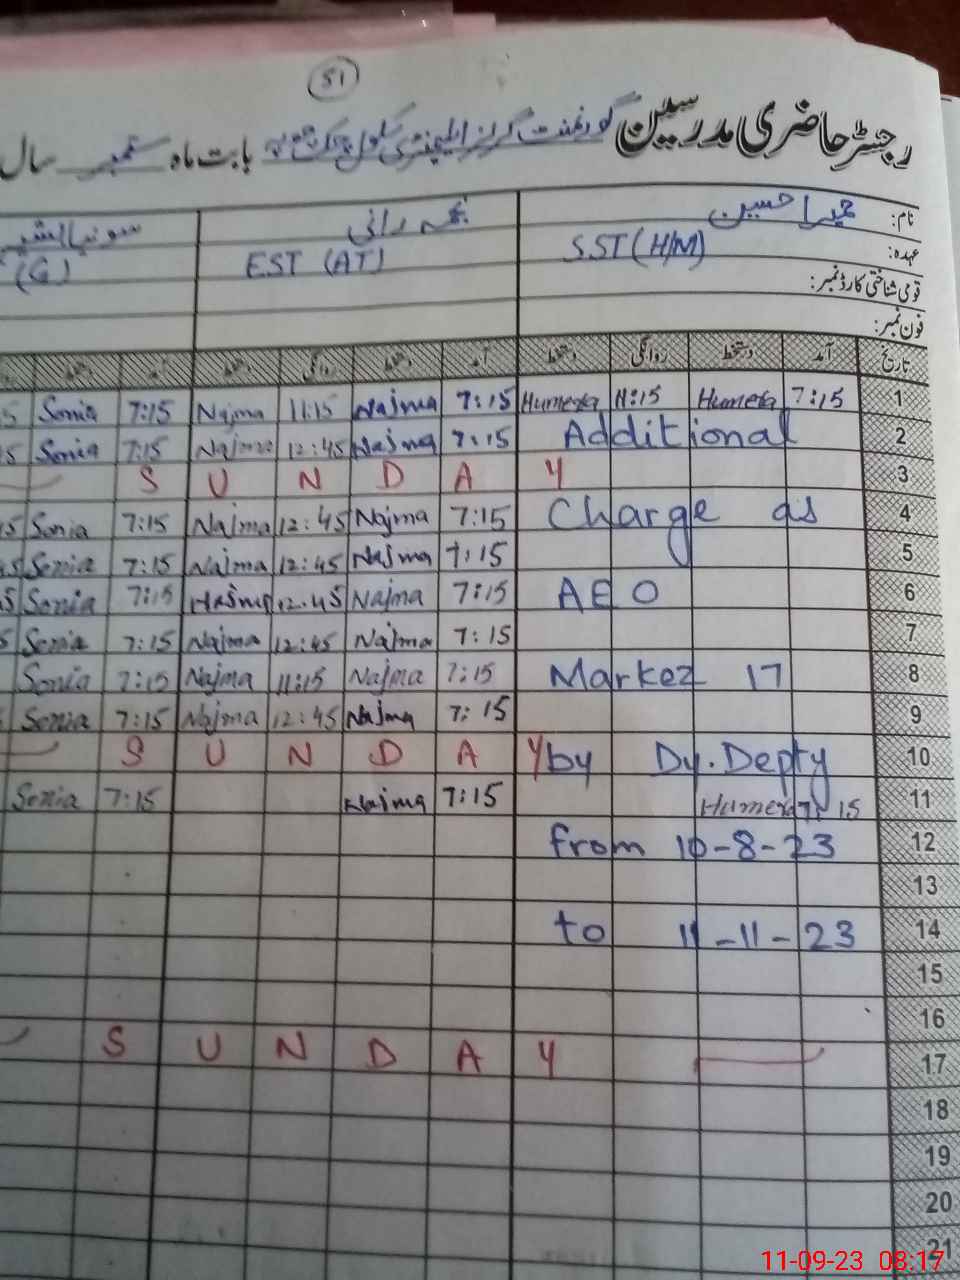 51
رجسٹر حاضری مدرسین گورنمنٹ گرلز ایلیمنٹری سکول چک بابت ماہ ستمبر سال
نام: حمیرا حسین نجمہ رانی سونیا
عہدہ: SST (H/M) EST (AT) (G)
قومی شناختی کارڈ نمبر:
فون نمبر:
تاریخ آمد دستخط روانگی دستخط آمد دستخط روانگی دستخط آمد دستخط
5 Sonia 7:15 Najma 11:15 Najma 7:15 Humera 11:15 Humera 7:15 1
5 Sonia 7:15 Najma 12:45 Najma 7:15 Additional 2
S U N D A Y 3
15 Sonia 7:15 Najma 12:45 Najma 7:15 Charge as 4
45 Sonia 7:15 Najma 12:45 Najma 7:15 5
45 Sonia 7:15 Najma 12.45 Najma 7:15 AEO 6
5 Sonia 7:15 Najma 12:45 Najma 7:15 7
Sonia 7:15 Najma 11:15 Najma 7:15 Markez 17 8
Sonia 7:15 Najma 12:45 Najma 7:15 9
S U N D A Y by Dy. Depty 10
Sonia 7:15 Najma 7:15 Humera 7:15 11
from 10-8-23 12
13
to 11-11-23 14
15
16
S U N D A Y 17
18
19
20
21
11-09-23 08:17